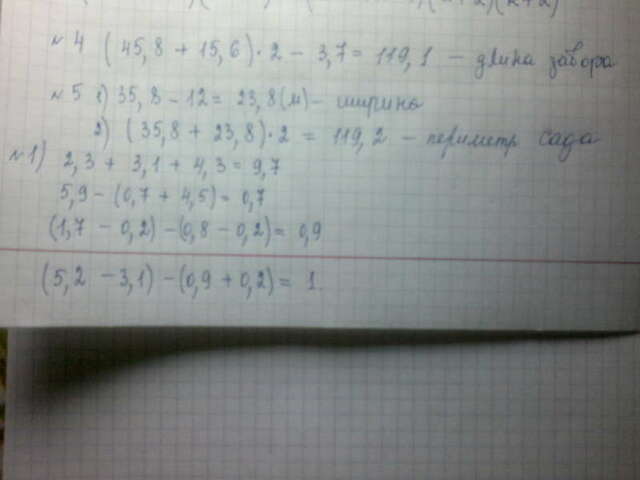 № 4 (45,8 + 15,6)·2 − 3,7 = 119,1 − длина забора
№ 5 1) 35,8 − 12 = 23,8 (м) − ширины
2) (35,8 + 23,8)·2 = 119,2 − периметр сада
№ 1) 2,3 + 3,1 + 4,3 = 9,7
5,9 − (0,7 + 4,5) = 0,7
(1,7 − 0,2) − (0,8 − 0,2) = 0,9
(5,2 − 3,1) − (0,9 + 0,2) = 1